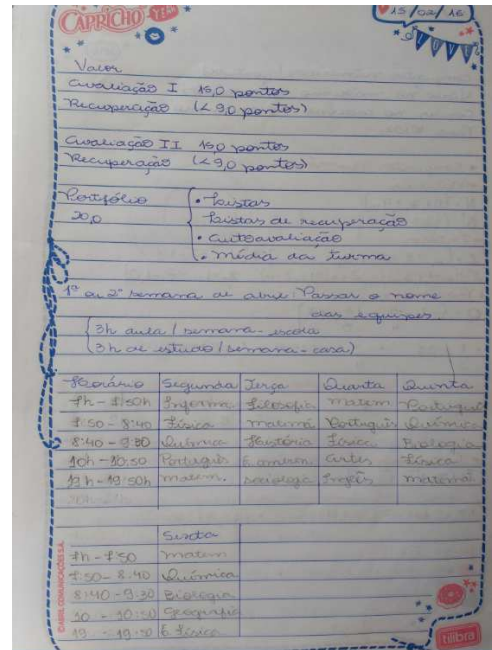 CAPRICHO
15/02/16
Valor
Avaliação I 15,0 pontos
Recuperação (< 9,0 pontos)
Avaliação II 15,0 pontos
Recuperação (< 9,0 pontos)
Portfólio • Listas
20,0 Listas de recuperação
• Autoavaliação
• média da turma
1ª ou 2ª semana de abril Passar o nome
das equipes.
3h aula / semana - escola
(3h de estudo / semana - casa)
Horário Segunda Terça Quarta Quinta
7h - 7:50h Informa Filosofia matem Portuguê
7:50 - 8:40 Física matemá Português Química
8:40 - 9:30 Química História Física Biologia
10h - 10:50 Português Artes Física
19h - 19:50h matem. sociologia Inglês matemá
Sexta
7h - 7:50 matem
7:50 - 8:40 Química
8:40 - 9:30 Biologia
10 - 10:50 Geografia
19 - 19:50 E. Física
©ABRIL COMUNICAÇÕES S.A.
tilibra